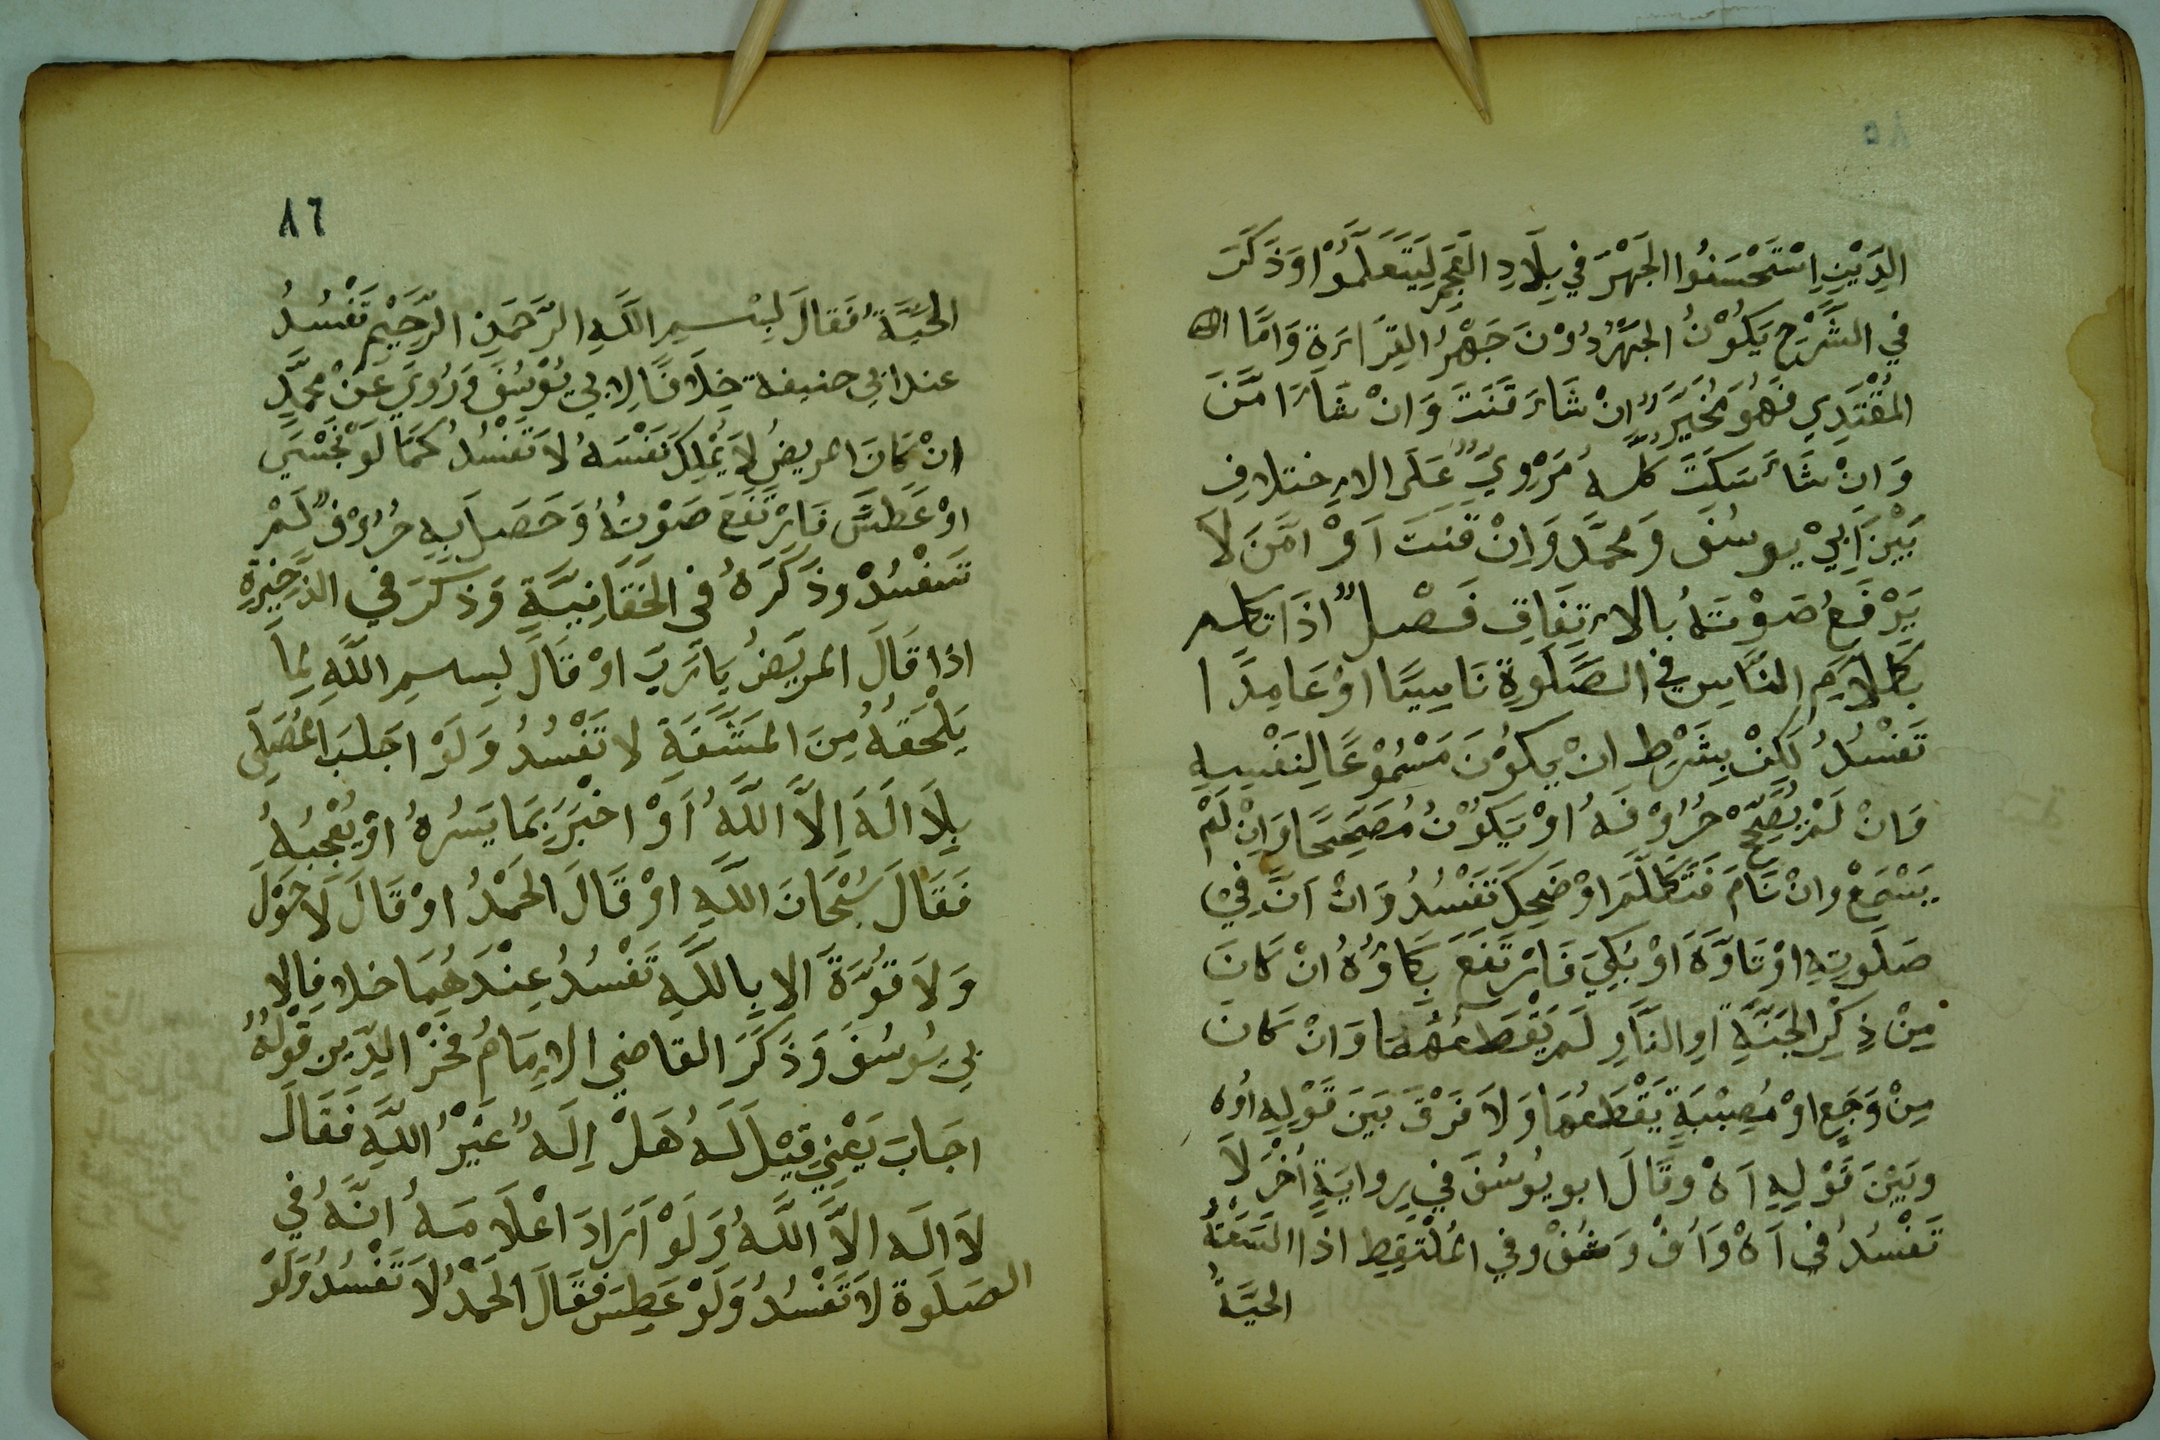 ٨٥
الدِّيْنِ اسْتَحْسَنُوا الجَهْرَ في بِلَادِ العَجَمِ لِيَتَعَلَّمُوْا وَذَكَرَ
في الشَّرْحِ يَكُوْنُ الجَهْرُ دُوْنَ جَهْرُ القِرَاءَةِ وَامَّا
المُقْتَدِي فَهُوَ مُخَيَّرٌ انْ شَاءَ قَنَتَ وَانْ شَاءَ امَّنَ
وَانْ شَاءَ سَكَتَ كلُّهُ مَرْوِيٌّ عَلَى الاِختلافِ
بَيْنَ اَبِيْ يوسُفَ وَمحمَّد وَاِنْ قَنَتَ اَوْ امَّنَ لَا
يَرْفَعُ صَوْتَهُ بالاِتِفَاقِ فَصْل اذَا تكلم
بِكَلَامِ النَّاسِ في الصَّلَوةِ نَاسِيًا اوْ عَامِدًا
تَفْسُدُ لَكِنْ بِشَرْطِ انْ يكوْنَ مَسْمُوْعًا لِنَفْسِهِ
وَانْ لَمْ يُصَحِّحْ حُرُوْفَهُ اوْ يَكُوْنُ مُصَحِّحًا وَاِنْ لَمْ
يَسْمَعْ وانْ نَامَ فَتَكَلَّمَ اوْ ضَحِكَ تَفْسُدُ وَانْ اَنَّ فِيْ
صَلَوتِهِ اوْ تَاوَّهَ اَوْ بَكِيَ فَارْتَفَعَ بُكَاؤُهُ انْ كَانَ
مِنْ ذِكْرِ الجَنَّةِ اَوِ النَّارِ لَمْ يَقْطَعْهَا وَانْ كَانَ
مِنْ وَجَعٍ اوْ مُصِيْبَةٍ يَقْطَعُهَا وَلَا فَرْقَ بَيَنَ قَوْلِهِ اُوْه
وبَيْنَ قَوْلِهِ اَهْ وقَالَ ابو يُوسُفَ في رِوايَةٍ اُخْرَ لَا
تَفْسُدُ في اَهْ وَاُفْ وَتُفْ وفي المُلْتَقِطِ اذا السَعَتْهُ
الحيَّةُ
٨٦
الحَيَّةُ فَقالَ بِسْمِ اللَّهِ الرَّحْمَنِ الرَّحِيْمِ تَفْسُدُ
عند ابي حنيفة خِلَافًا لِابي يُوْسُفَ وَرُوِيَ عَنْ محمَّدٍ
انْ كَانَ المريضُ لَا يَمْلِكُ نَفْسَهُ لَا تَفْسُدُ كَمَا لَوْ تَجَشَّي
اوْ عَطَسَ فَارْتَفَعَ صَوْتُهُ وَحَصَلَ بِهِ حُرُوْفٌ لَمْ
تَفْسُدْ وذَكَرَهُ في الخَقَانِيَّةِ وَذكَرَ في الذَّخِيْرَةِ
اذا قَالَ المريْضُ يَا رَبِّ اوْ قَالَ بِسمِ اللَّهِ لِمَا
يَلْحَقُهُ مِنَ المَشَقَةِ لا تَفْسُدُ وَلَوْ اجَابَ المُصَلِّي
بِلَا الَهَ اِلَّا اللَّهُ اَوْ اخْبَرَ بِمَا يَسُرُهُ اوْ يُعْجِبُهُ
فَقَالَ سُبْحَانَ اللَّهِ اوْ قَالَ الحَمْدُ اوْ قَالَ لَا حَوْلَ
وَلَا قُوَّةَ الا بِاللَّهِ تَفْسُدُ عِنْدَهُمَا خلافا لِا
بِي يُوسُفَ وَذَكَرَ القاضي الاِمَامُ فَخْرُ الدِّين قوْلهُ
اجَابَ يَعْنِي قِيْلَ لَهُ هَلْ اِلَهٌ غَيْرُ اللَّهِ فَقَالَ
لَا الَه الَّا اللَّهُ وَلَوْ اَرَادَ اعْلَامَهُ انَّهُ في
الصَلَوة لَا تَفْسُدُ وَلَوْ عَطِسَ فَقَالَ الحَمْدُ لَا تَفْسُدُ وَلَوْ